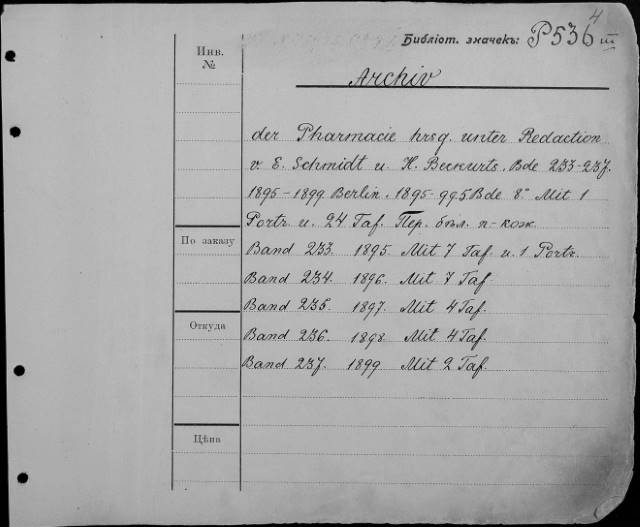 4
Библіот. значекъ: P536 III
Инв.
№
Archiv
der Pharmacie hrsg. unter Redaction
v. E. Schmidt u. H. Beckurts. Bde 233-237.
1895-1899 Berlin. 1895-99 5 Bde 8° Mit 1
Portr. u. 24 Taf. Пер. бѣл. п-кож.
По заказу
Band 233. 1895. Mit 7 Taf. u. 1 Portr.
Band 234. 1896. Mit 7 Taf.
Band 235. 1897. Mit 4 Taf.
Откуда
Band 236. 1898 Mit 4 Taf.
Band 237. 1899 Mit 2 Taf.
Цѣна